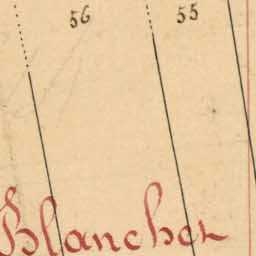 56 55
Blancher